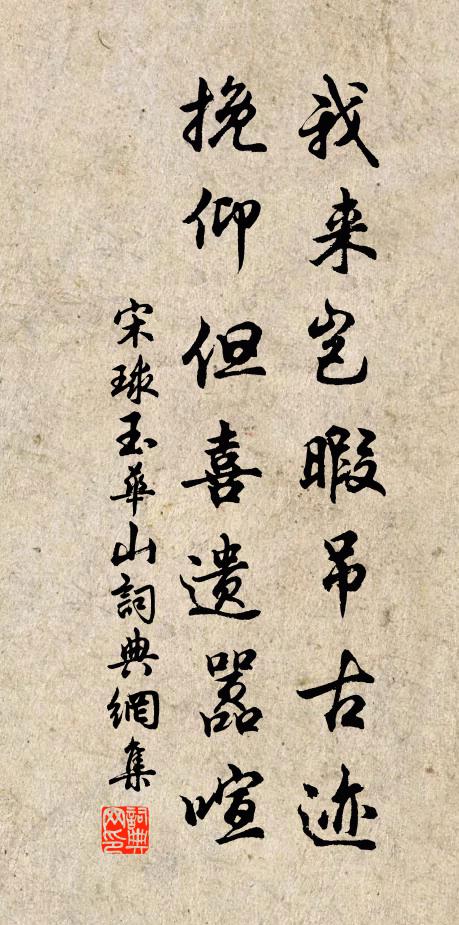 我来岂暇吊古迹
挽仰但喜遗嚣喧
宋球玉華山詞典網集
詞典網印